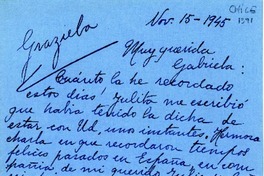 Nov. 15-1945
Graziela
Muy querida
Gabriela:
Cuánto la he recordado
estos días! Julita me escribió
que había tenido la dicha de
estar con Ud. unos instantes. Hermosa
charla en que recordaron tiempos
felices pasados en España, en com-
pañía de mi querido